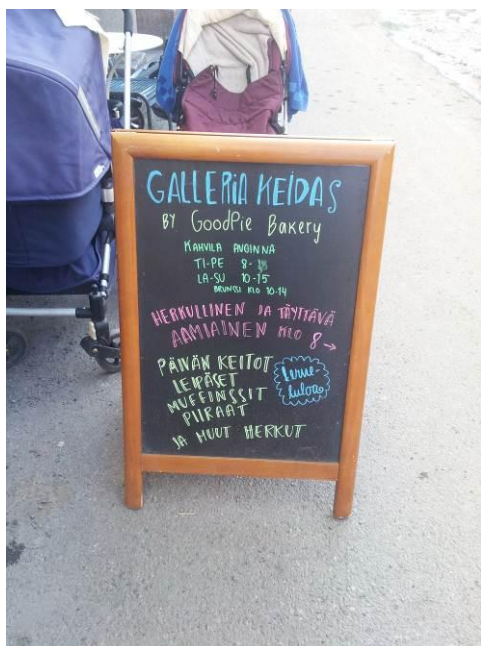 GALLERIA KEIDAS
BY GoodPie Bakery
KAHVILA AVOINNA
TI-PE 8-
LA-SU 10-15
BRUNSSI KLO 10-14
HERKULLINEN JA TÄYTTÄVÄ
AAMIAINEN KLO 8→
PÄIVÄN KEITOT
LEIPÄSET
MUFFINSSIT
PIIRAAT
JA MUUT HERKUT
Terve-
tuloa